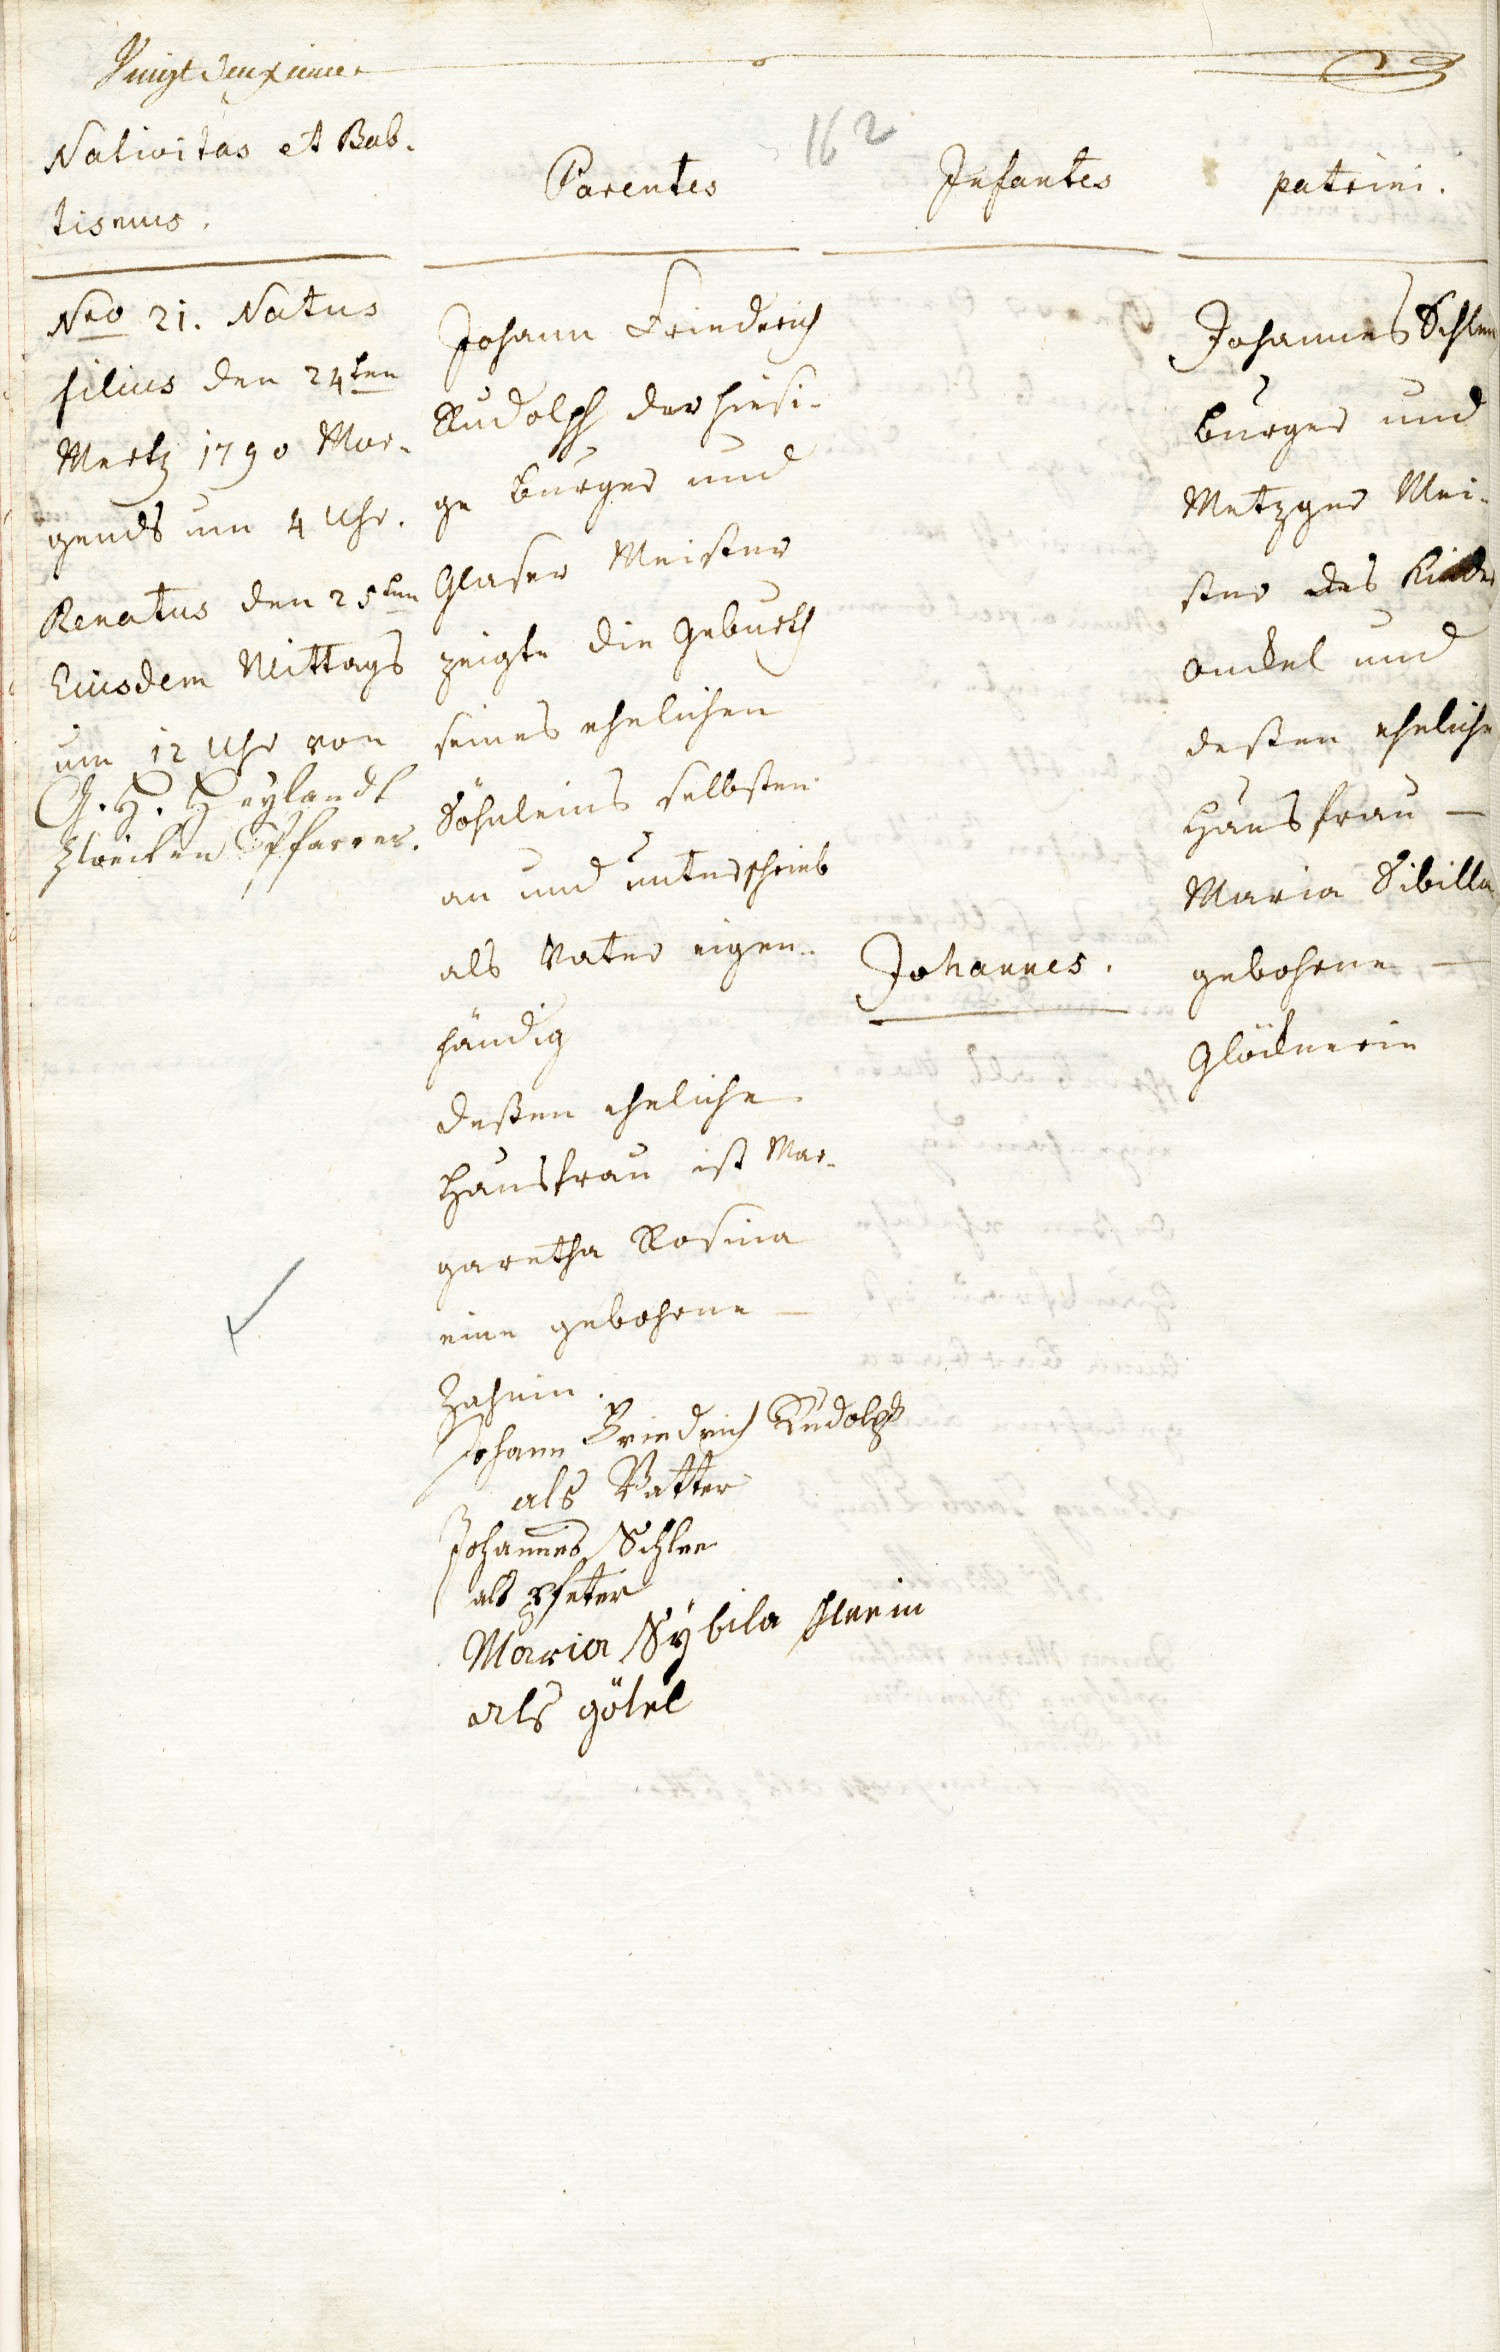 Vingt deuxieme
162
Nativitas et Bab-
tismus.
Parentes
Infantes
patrini.
Nro 21. Natus
filius den 24ten
Mertz 1790 Mor-
gends um 4 Uhr.
Renatus den 25ten
Eiusdem Mittags
um 12 Uhr von
G. H. Heylandt
Zweiten Pfarrer.
Johann Friederich
Rudolph der hiesi-
ge burger und
Glaser Meister
zeigte die Geburth
seines ehelichen
Söhnleins selbsten
an und unterschrieb
als Vater eigen-
händig
deßen eheliche
Hausfrau ist Mar-
garetha Rosina
eine gebohrne —
Zahnin.
Johann Friedrich Rudolph
als Vatter
Johannes Schlee
als Pfeter
Maria Sybila schleein
als götel
Johannes.
Johannes Schlee
burger und
Metzger Mei-
ster des Kindes
onckel und
deßen eheliche
Hausfrau —
Maria Sibilla
gebohrne —
Glöcknerin